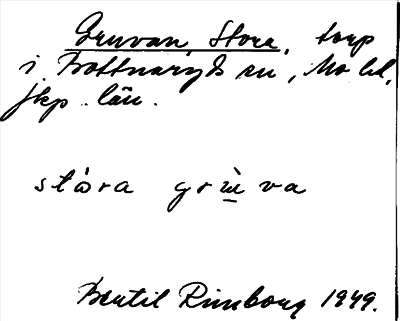 Gruvan, Stora, torp
i Bottnaryds sn, Mo hd,
Jkp. län.
stòra grùva
Bertil Rimborg 1979.